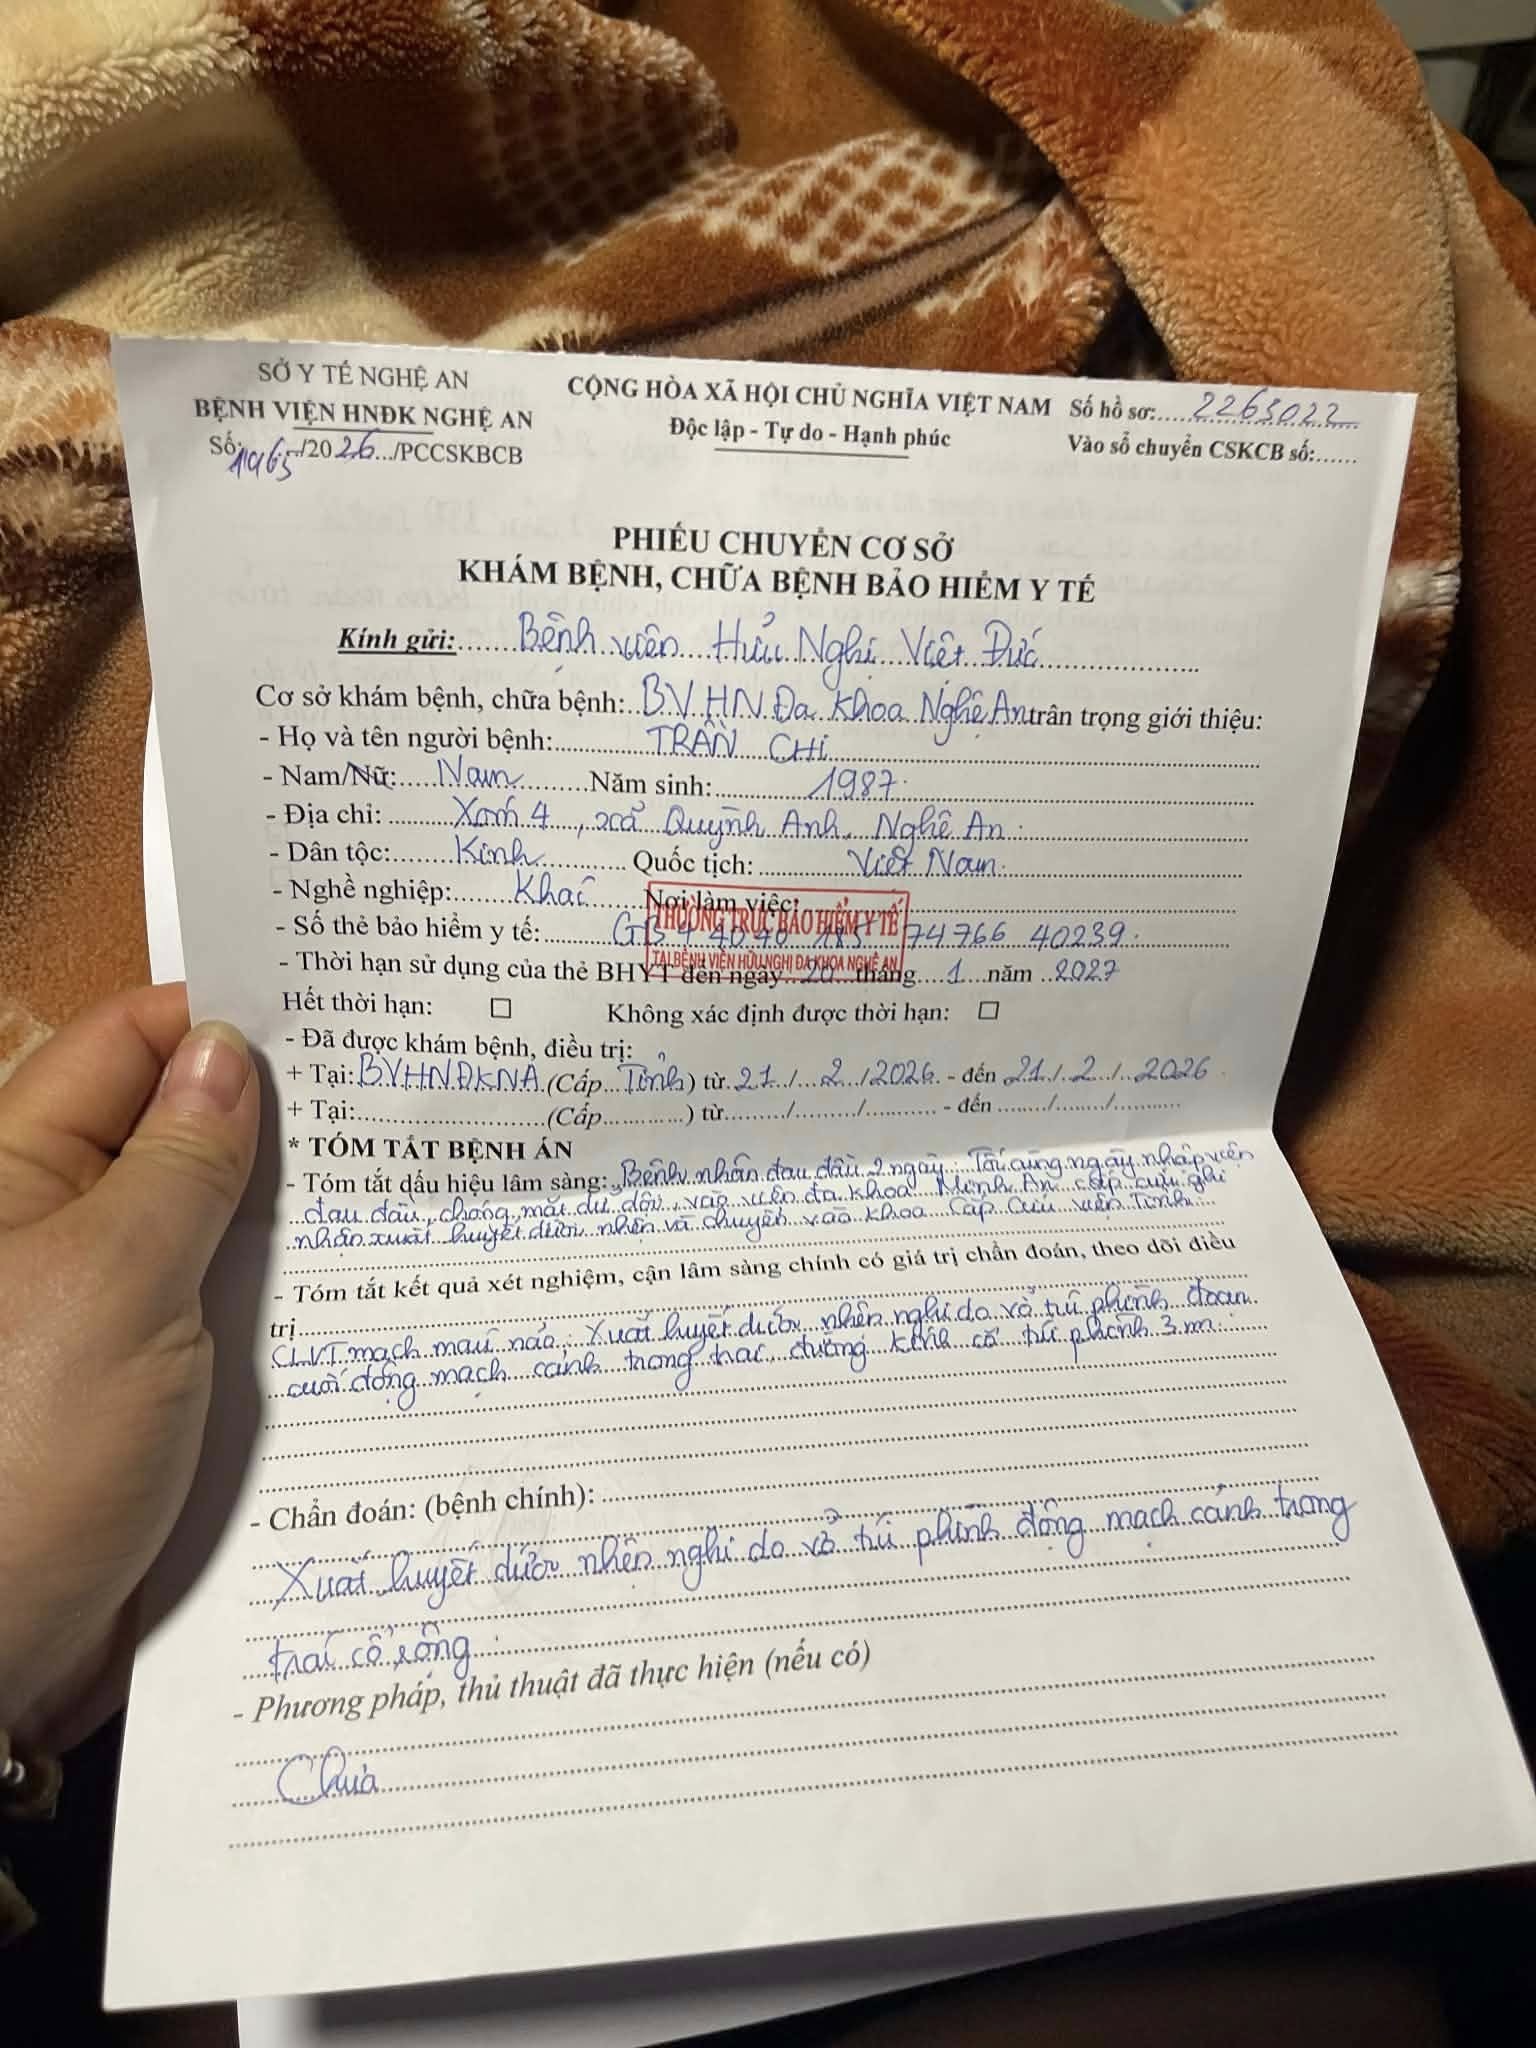 SỞ Y TẾ NGHỆ AN
BỆNH VIỆN HNĐK NGHỆ AN
Số: 1965/2026/PCCSKBCB
CỘNG HÒA XÃ HỘI CHỦ NGHĨA VIỆT NAM
Độc lập - Tự do - Hạnh phúc
Số hồ sơ: 2263022
Vào sổ chuyển CSKCB số:......
PHIẾU CHUYỂN CƠ SỞ
KHÁM BỆNH, CHỮA BỆNH BẢO HIỂM Y TẾ
Kính gửi: Bệnh viện Hữu Nghị Việt Đức
Cơ sở khám bệnh, chữa bệnh: BV HN Đa khoa Nghệ An trân trọng giới thiệu:
- Họ và tên người bệnh: TRẦN CHÍ
- Nam/Nữ: Nam Năm sinh: 1987
- Địa chỉ: Xóm 4, xã Quỳnh Anh, Nghệ An
- Dân tộc: Kinh Quốc tịch: Việt Nam
- Nghề nghiệp: Khác Nơi làm việc:
- Số thẻ bảo hiểm y tế: GB 4 40 40 185 74766 40239
THƯỜNG TRỰC BẢO HIỂM Y TẾ
TẠI BỆNH VIỆN HỮU NGHỊ ĐA KHOA NGHỆ AN
- Thời hạn sử dụng của thẻ BHYT đến ngày 20 tháng 1 năm 2027
Hết thời hạn: ☐ Không xác định được thời hạn: ☐
- Đã được khám bệnh, điều trị:
+ Tại: BVHNĐKNA (Cấp Tỉnh) từ 21/2/2026 - đến 21/2/2026
+ Tại:..........(Cấp..........) từ......../......../........ - đến ......../......../........
* TÓM TẮT BỆNH ÁN
- Tóm tắt dấu hiệu lâm sàng: Bệnh nhân đau đầu 2 ngày. Tối cùng ngày nhập viện
đau đầu, chóng mặt dữ dội, vào viện đa khoa Minh An cấp cứu ghi
nhận xuất huyết dưới nhện và chuyển vào khoa Cấp Cứu viện Tỉnh
- Tóm tắt kết quả xét nghiệm, cận lâm sàng chính có giá trị chẩn đoán, theo dõi điều
trị
CLVT mạch máu não: Xuất huyết dưới nhện nghi do vỡ túi phình đoạn
cuối động mạch cảnh trong trái, đường kính cổ túi phình 3 m
- Chẩn đoán: (bệnh chính):
Xuất huyết dưới nhện nghi do vỡ túi phình động mạch cảnh trong
trái cổ rộng
- Phương pháp, thủ thuật đã thực hiện (nếu có)
Chưa